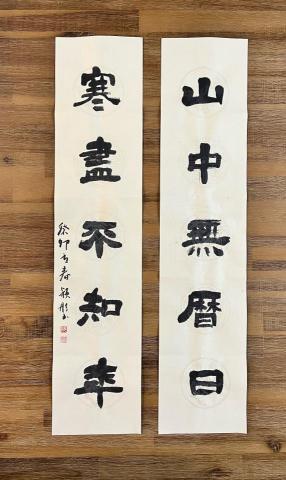 山中無曆日
寒盡不知年
癸卯春穎彤书